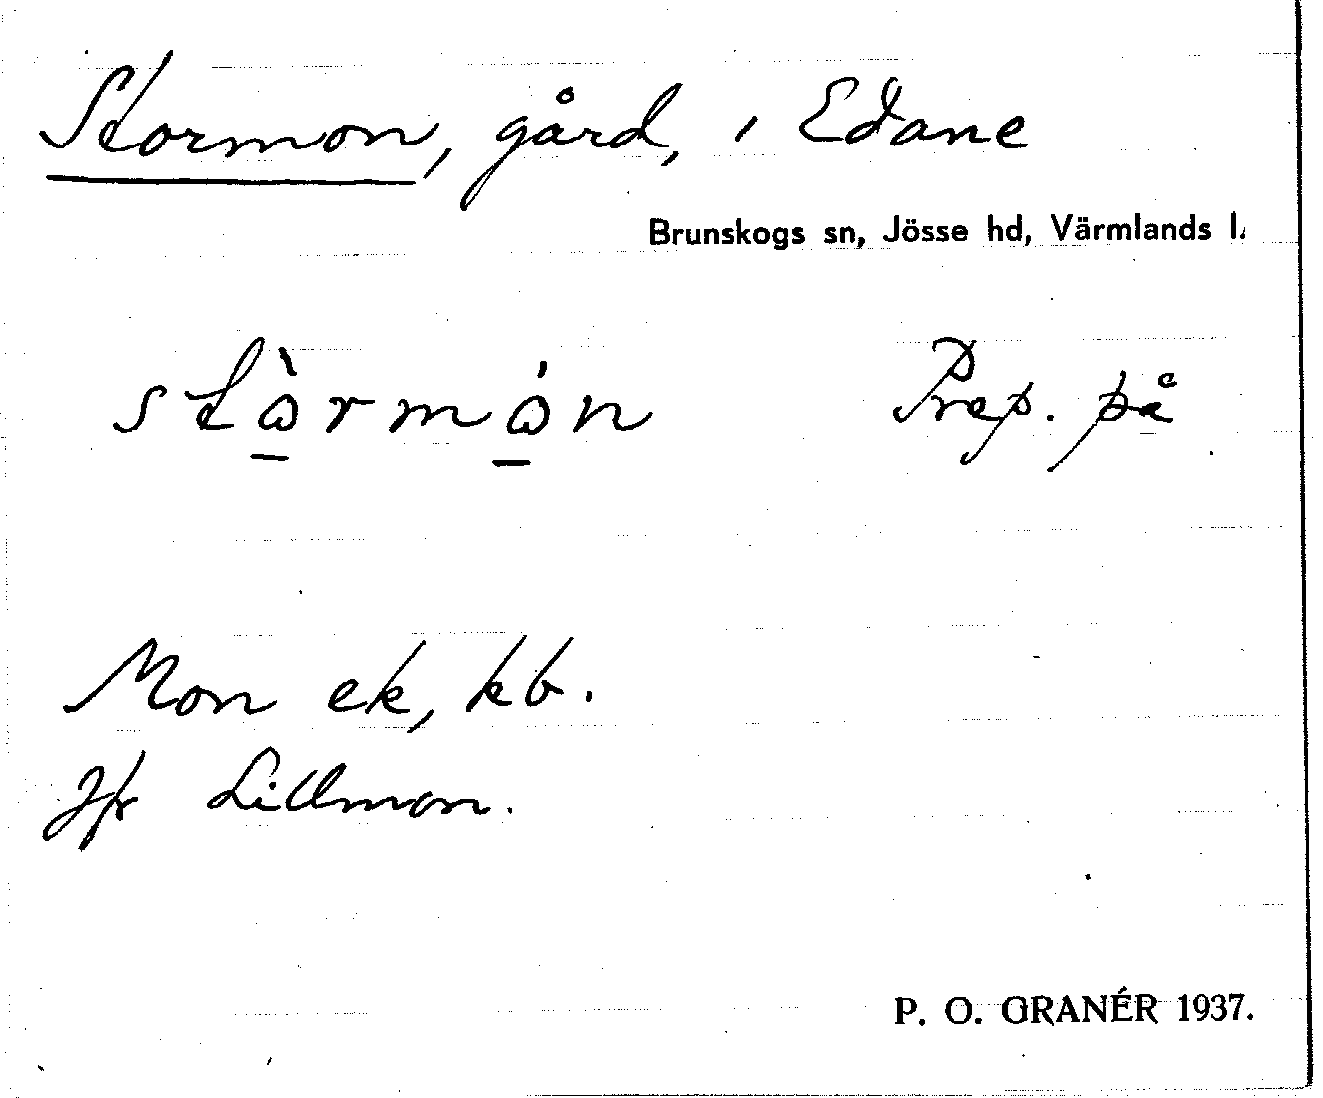 Stormon, gård, i Edane
Brunskogs sn, Jösse hd, Värmlands l.
Prep. på
Mon ek, kb.
Jfr Lillmon.
P. O. GRANÉR 1937.